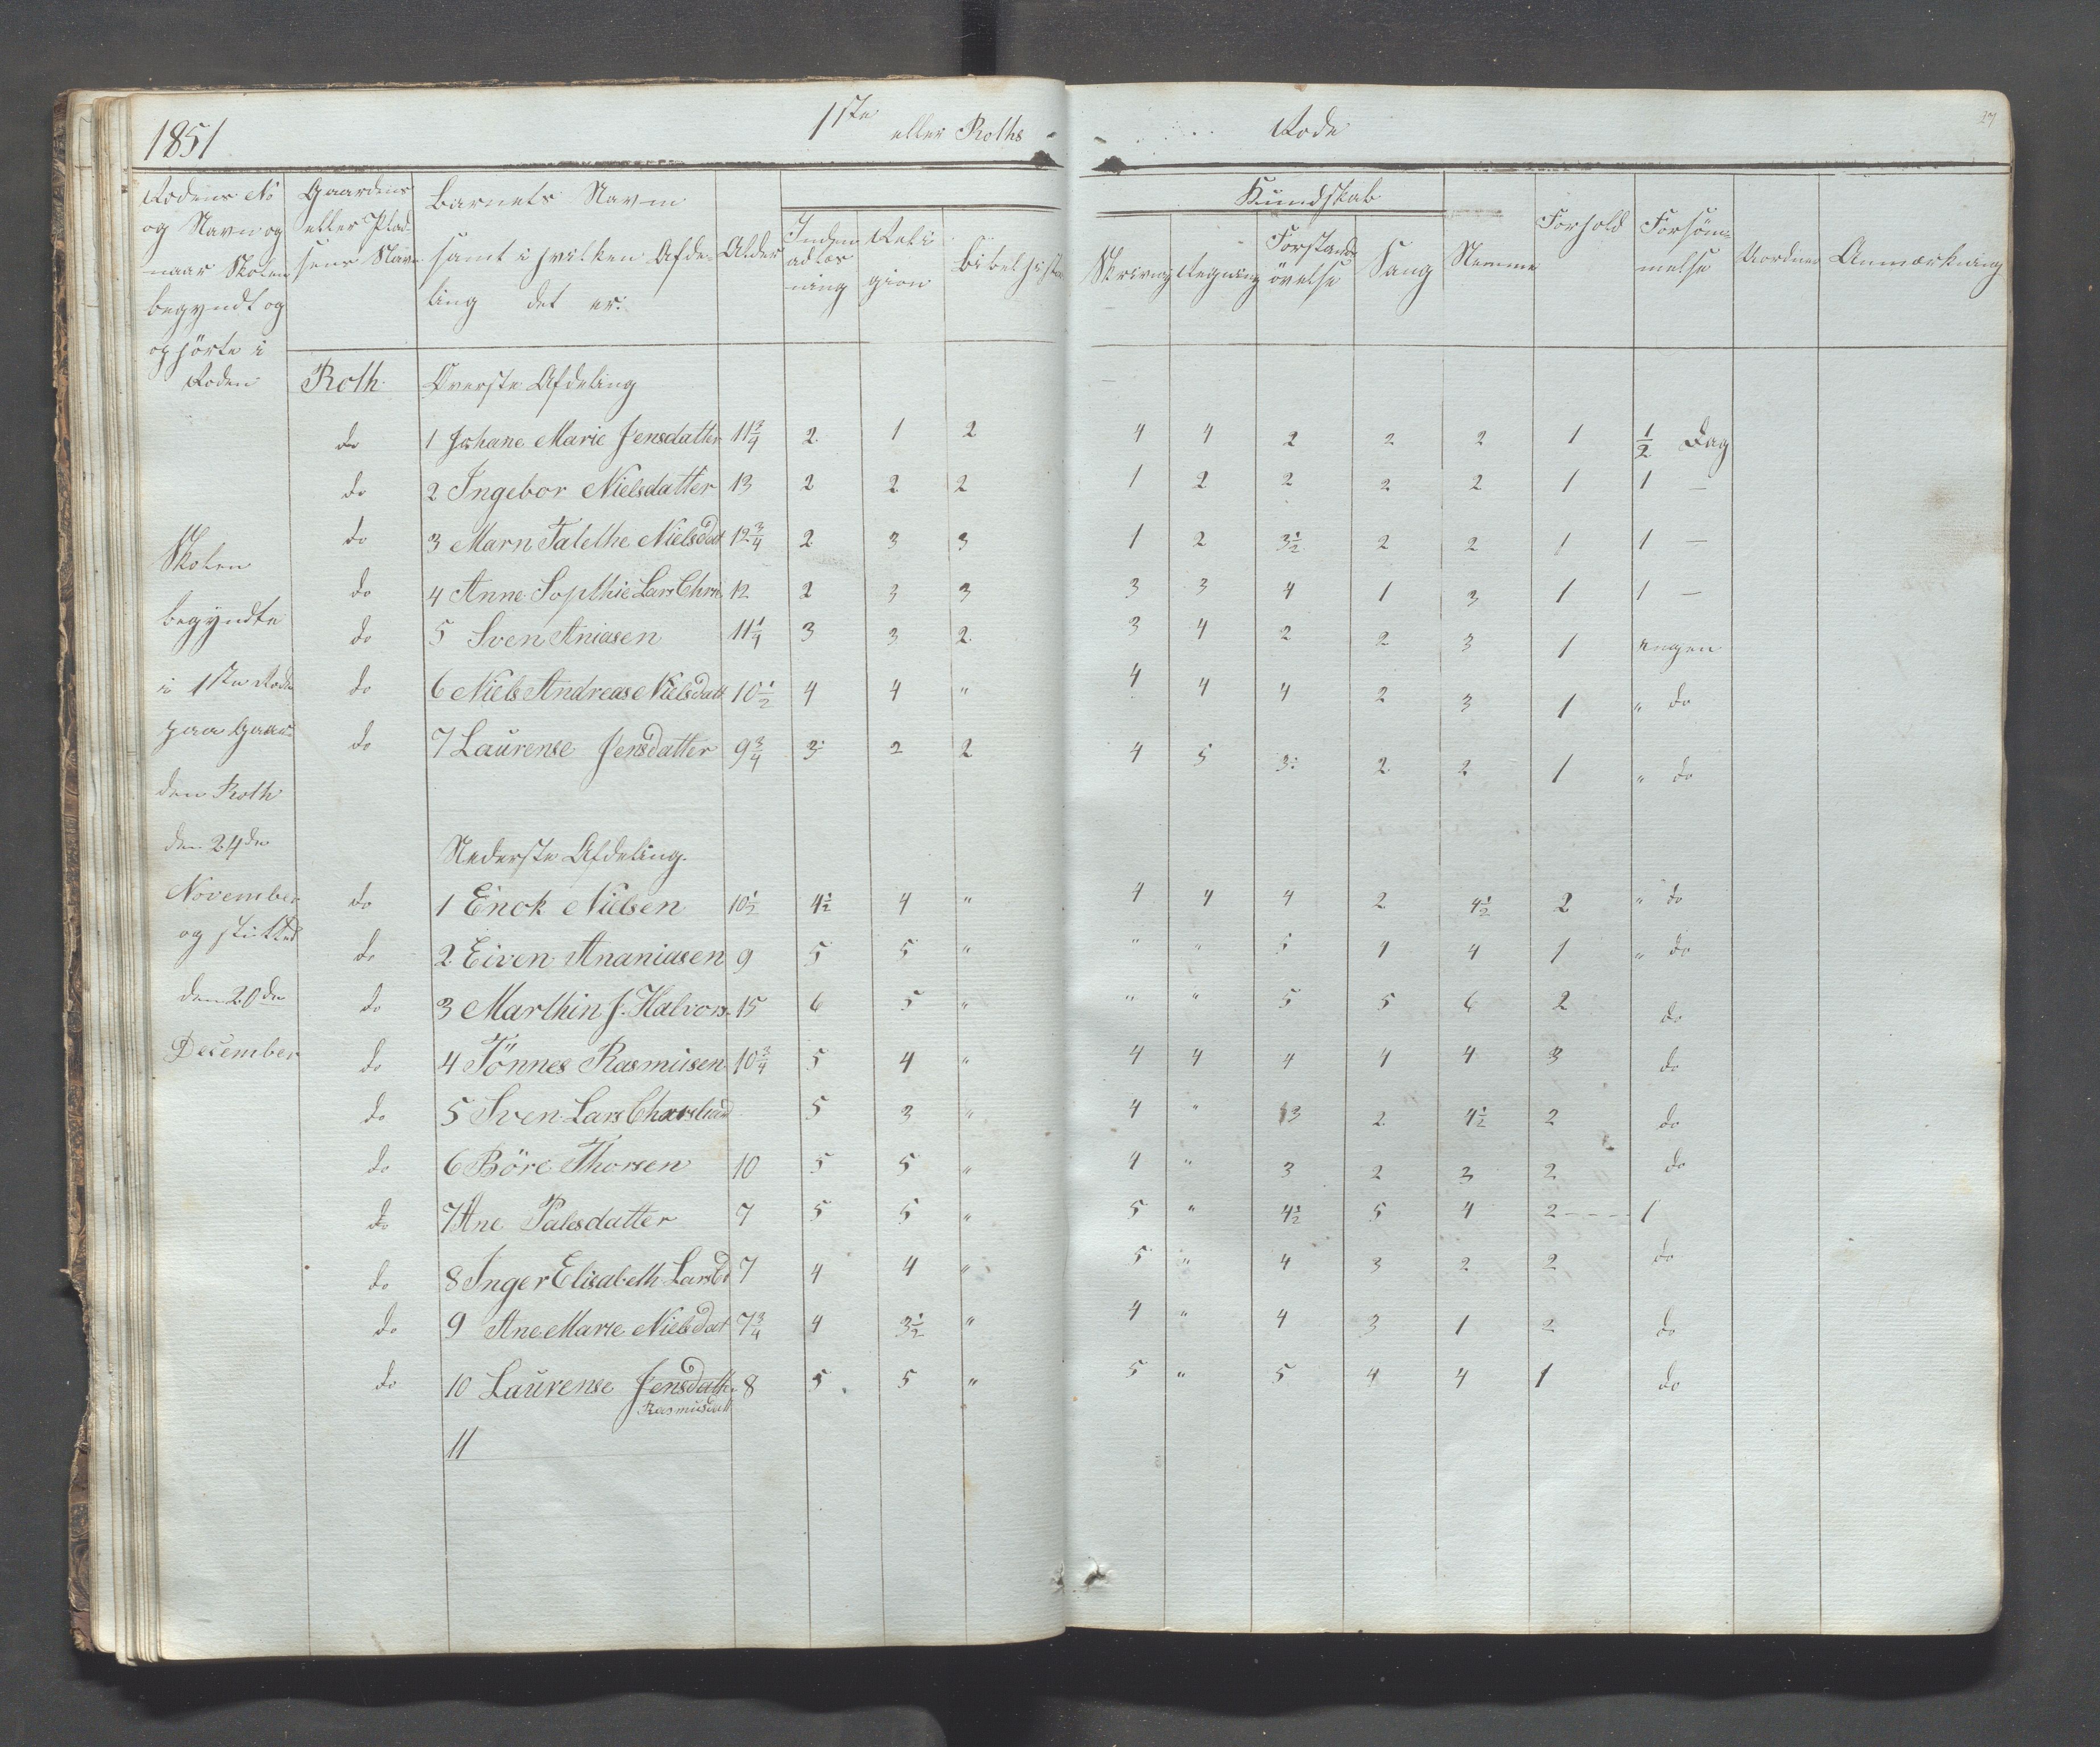 1851 1ste eller Roths Rode
Rodens No og Navn og naar Skolen begyndt og ophörte i Roden
Gaardens eller Pladsens Navn
Barnets Navn samt i hvilken Afdeling det er:
Alder
Kundskab
Indenadlæsning
Religion
Bibelhistorie
Skrivning
Regning
Forstandsövelse
Sang
Nemme
Forhold
Forsömmelse
Uorden
Anmærkning
Roth Överste Afdeling
do 1 Johane Marie Jensdatter 11 3/4 2 1 2 4 4 2 2 2 1 1/2 Dag
do 2 Ingebor Nielsdatter 13 2 2 2 1 2 2 2 2 1 1 —
do 3 Marn Talethe Nielsdat 12 3/4 2 3 3 1 2 3 1/2 2 2 1 1 —
do 4 Anne Sopthie Lars Chri 12 2 3 3 3 3 4 1 3 1 1 —
do 5 Sven Aniasen 11 1/4 3 3 2 3 4 2 2 3 1 ingen
do 6 Niels Andreas Nielsdatt 10 1/2 4 4 " 4 4 4 2 3 1 " do
do 7 Laurense Jensdatter 9 3/4 3 2 2 4 5 3 2 2 1 " do
Skolen
begyndte
i 1ste Rode
paa Gaar-
den Roth
den 24de
November
og slutted
den 20de
December
Nederste Afdeling.
do 1 Enok Nielsen 10 1/2 4 1/2 4 " 4 4 4 2 4 1/2 2 " do
do 2 Eiven Ananiasen 9 5 5 " " " 5 4 4 1 " do
do 3 Marthin J. Halvors. 15 6 5 " " " 5 5 6 2 do
do 4 Tönnes Rasmusen 10 3/4 5 4 " 4 4 4 4 4 3 do
do 5 Sven Lars 5 3 " 4 " 3 2 4 1/2 2 do
do 6 Böre Thorsen 10 5 5 " 4 " 3 2 3 2 do
do 7 Ane Palesdatter 7 5 5 " 5 " 4 1/2 5 4 2 - - - 1
do 8 Inger Elisabeth Larsd 7 4 4 " 5 " 4 3 2 2 do
do 9 Ane Marie Nielsdat 7 3/4 4 3 1/2 " 4 " 4 3 1 2 do
do 10 Laurense Jensdatt. 8 5 5 " 5 " 5 4 4 1 do
Rasmusdatt
11